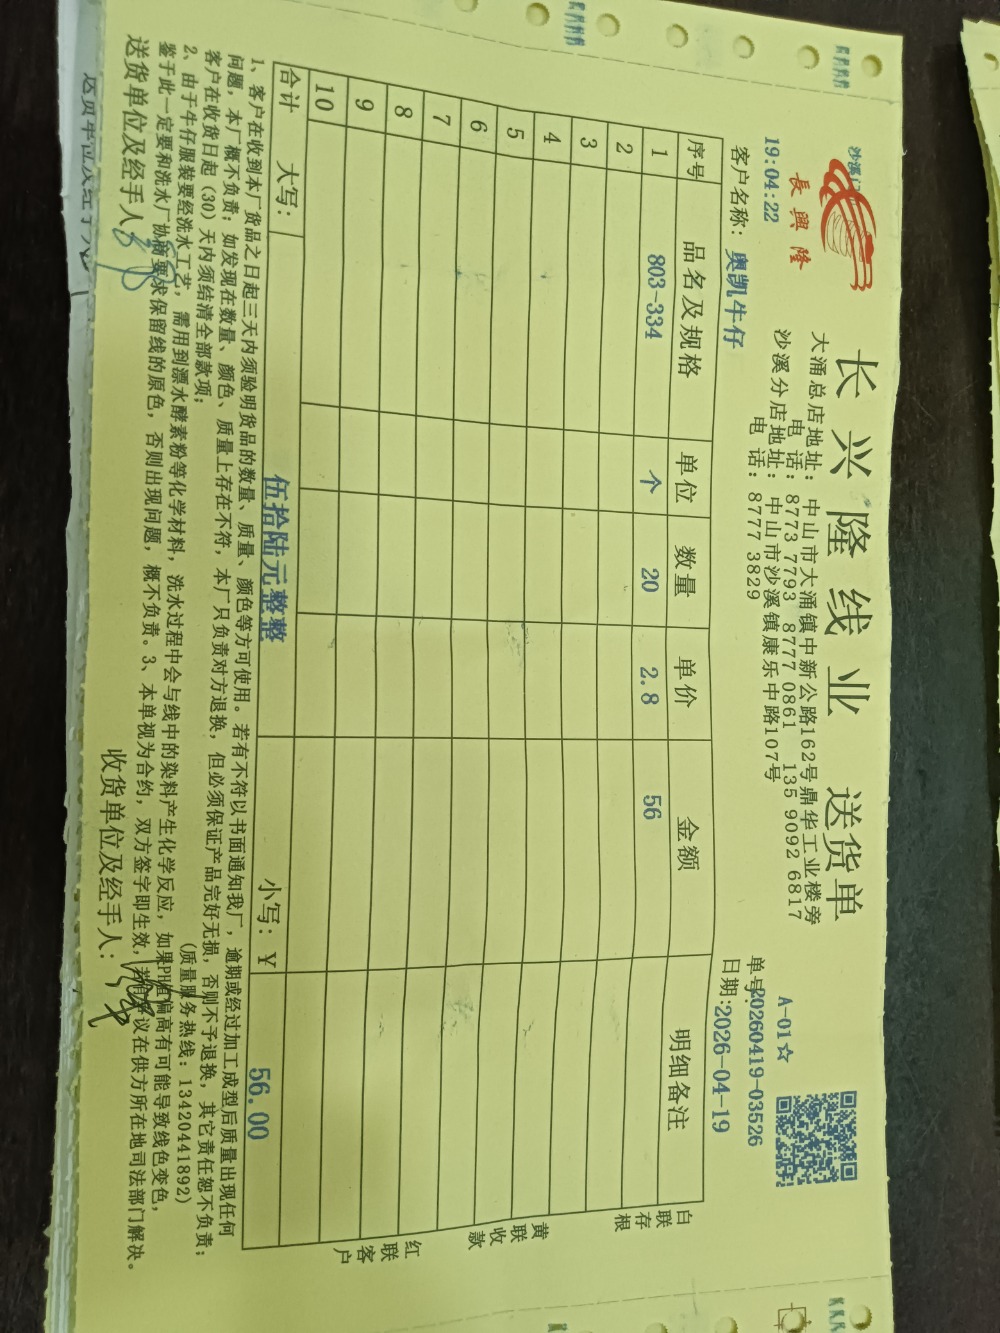 长兴隆线业 送货单
長興隆
19:04:22
大涌总店地址: 中山市大涌镇中新公路162号鼎华工业楼旁
电 话: 8773 7793 8777 0861 135 9092 6817
沙溪分店地址: 中山市沙溪镇康乐中路107号
电 话: 8777 3829
A-01☆
单号:20260419-03526
客户名称: 奥凯牛仔
日期:2026-04-19
序号 品名及规格 单位 数量 单价 金额 明细备注
1 803-334 个 20 2.8 56
2
3
4
5
6
7
8
9
10
合计 大写: 伍拾陆元整整 小写: ¥ 56.00
白联存根
黄联收款
红联客户
1、客户在收到本厂货品之日起三天内须验明货品的数量、质量、颜色等方可使用。若有不符以书面通知我厂,逾期或经过加工成型后质量出现任何
问题,本厂概不负责;如发现在数量、颜色、质量上存在不符,本厂只负责对方退换,但必须保证产品完好无损,否则不予退换,其它责任恕不负责;
客户在收货日起(30)天内须结清全部款项;
(质量服务热线: 13420441892)
2、由于牛仔服装要经洗水工艺,需用到漂水酵素粉等化学材料,洗水过程中会与线中的染料产生化学反应,如果PH值偏高有可能导致线色变色,
鉴于此一定要和洗水厂协商要求保留线的原色,否则出现问题,概不负责。3、本单视为合约,双方签字即生效,若有争议在供方所在地司法部门解决。
送货单位及经手人:
收货单位及经手人: